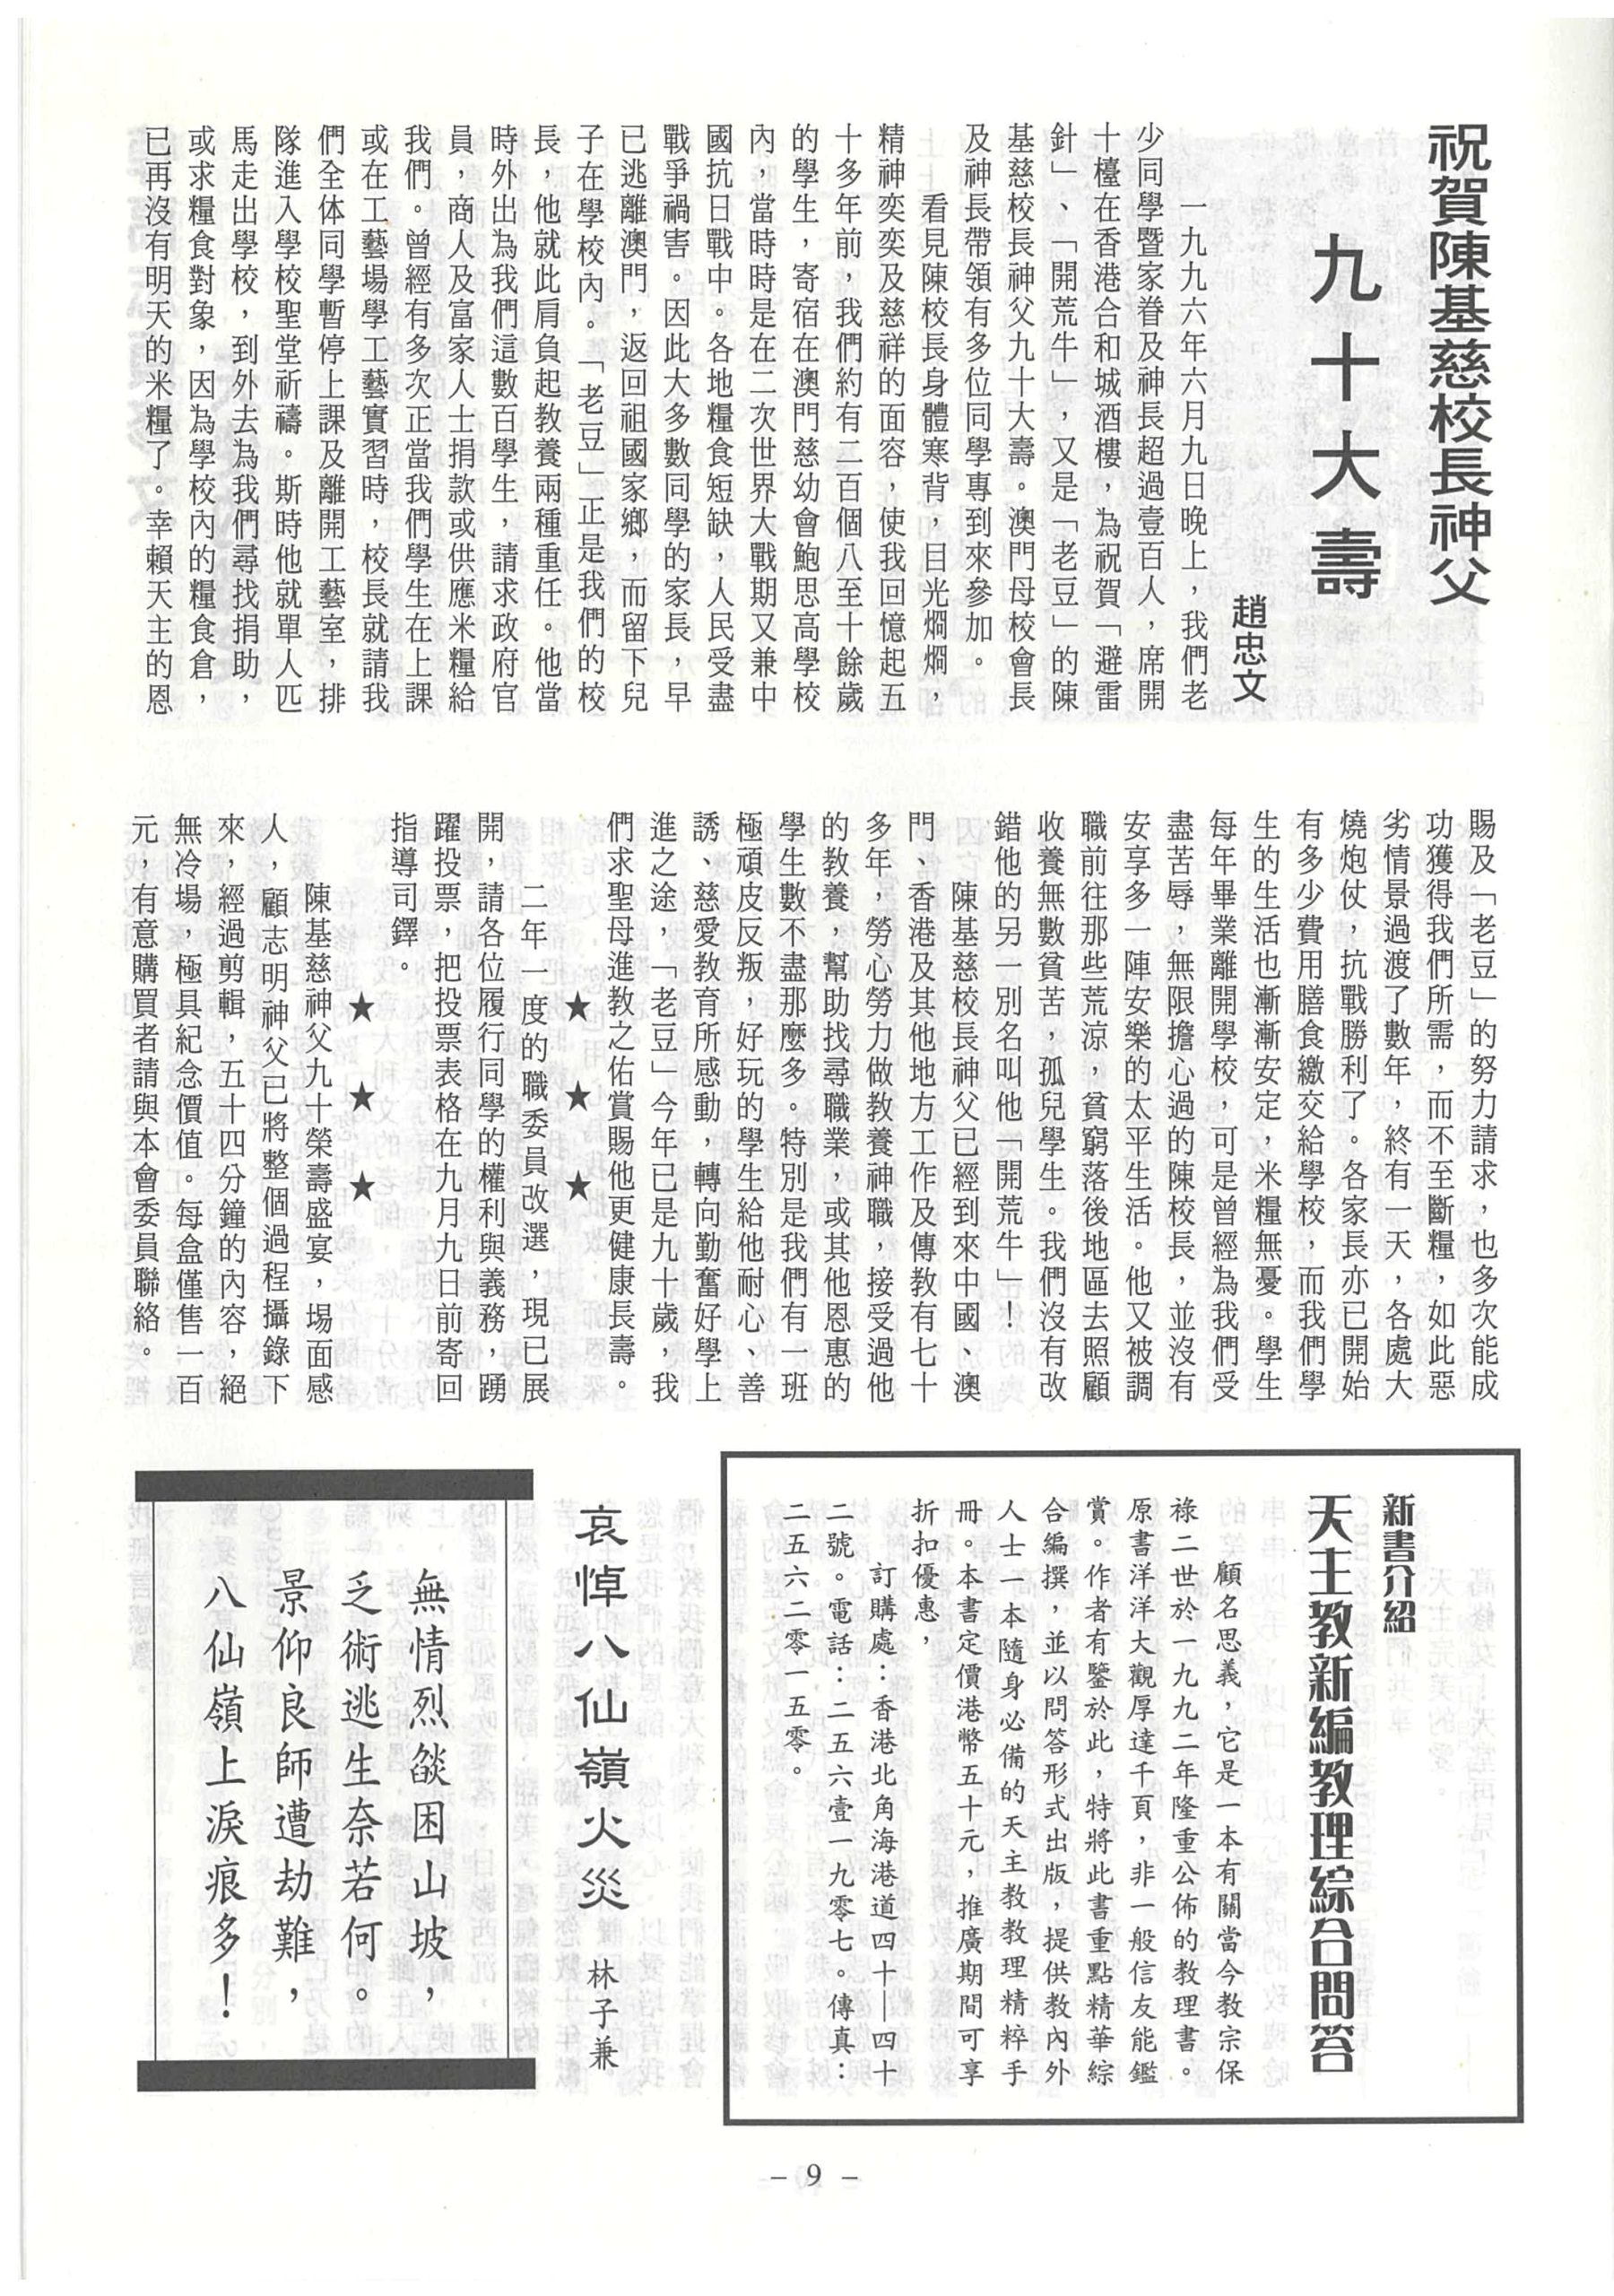 祝賀陳基慈校長神父
九十大壽
趙忠文
一九九六年六月九日晚上，我們老
少同學暨家眷及神長超過壹百人，席開
十檯在香港合和城酒樓，為祝賀「避雷
針」、「開荒牛」，又是「老豆」的陳
基慈校長神父九十大壽。澳門母校會長
及神長帶領有多位同學專到來參加。
看見陳校長身體寒背，目光烱烱，
精神奕奕及慈祥的面容，使我回憶起五
十多年前，我們約有二百個八至十餘歲
的學生，寄宿在澳門慈幼會鮑思高學校
內，當時時是在二次世界大戰期又兼中
國抗日戰中。各地糧食短缺，人民受盡
戰爭禍害。因此大多數同學的家長，早
已逃離澳門，返回祖國家鄉，而留下兒
子在學校內。「老豆」正是我們的校
長，他就此肩負起教養兩種重任。他當
時外出為我們這數百學生，請求政府官
員，商人及富家人士捐款或供應米糧給
我們。曾經有多次正當我們學生在上課
或在工藝場學工藝實習時，校長就請我
們全体同學暫停上課及離開工藝室，排
隊進入學校聖堂祈禱。斯時他就單人匹
馬走出學校，到外去為我們尋找捐助，
或求糧食對象，因為學校內的糧食食倉，
已再沒有明天的米糧了。幸賴天主的恩
賜及「老豆」的努力請求，也多次能成
功獲得我們所需，而不至斷糧，如此惡
劣情景過渡了數年，終有一天，各處大
燒炮仗，抗戰勝利了。各家長亦已開始
有多少費用膳食繳交給學校，而我們學
生的生活也漸漸安定，米糧無憂。學生
每年畢業離開學校，可是曾經為我們受
盡苦辱，無限擔心過的陳校長，並沒有
安享多一陣安樂的太平生活。他又被調
職前往那些荒涼，貧窮落後地區去照顧
收養無數貧苦，孤兒學生。我們沒有改
錯他的另一別名叫他「開荒牛」！
陳基慈校長神父已經到來中國、澳
門、香港及其他地方工作及傳教有七十
多年，勞心勞力做教養神職，接受過他
的教養，幫助找尋職業，或其他恩惠的
學生數不盡那麼多。特別是我們有一班
極頑皮反叛，好玩的學生給他耐心、善
誘、慈愛教育所感動，轉向勤奮好學上
進之途，「老豆」今年已是九十歲，我
們求聖母進教之佑賞賜他更健康長壽。
★ ★ ★
二年一度的職委員改選，現已展
開，請各位履行同學的權利與義務，踴
躍投票，把投票表格在九月九日前寄回
指導司鐸。
★ ★ ★
陳基慈神父九十榮壽盛宴，場面感
人，顧志明神父已將整個過程攝錄下
來，經過剪輯，五十四分鐘的內容，絕
無冷場，極具紀念價值。每盒僅售一百
元，有意購買者請與本會委員聯絡。
新書介紹
天主教新編教理綜合問答
顧名思義，它是一本有關當今教宗保
祿二世於一九九二年隆重公佈的教理書。
原書洋洋大觀厚達千頁，非一般信友能鑑
賞。作者有鑒於此，特將此書重點精華綜
合編撰，並以問答形式出版，提供教內外
人士一本隨身必備的天主教教理精粹手
冊。本書定價港幣五十元，推廣期間可享
折扣優惠，
訂購處：香港北角海港道四十—四十
二號。電話：二五六壹一九零七。傳真：
二五六二零一五零。
哀悼八仙嶺火災
林子兼
無情烈燄困山坡，
乏術逃生奈若何。
景仰良師遭劫難，
八仙嶺上淚痕多！
- 9 -